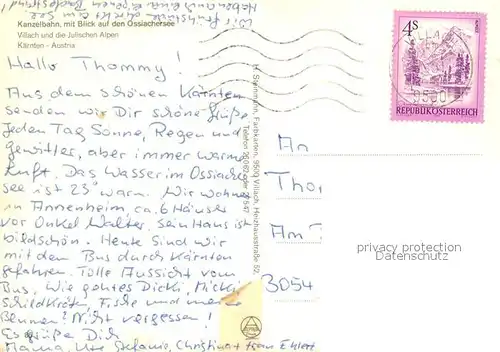 Wir frühstücken direkt am See
Haben auch einen Badestrand
Kanzelbahn, mit Blick auf den Ossiachersee
Villach und die Julischen Alpen
Kärnten - Austria
Hallo Thommy!
Aus dem schönen Kärnten
senden wir Dir schöne Grüße.
Jeden Tag Sonne, Regen und
Gewitter, aber immer warme
Luft. Das Wasser im Ossiacher
see ist 23° warm. Wir wohnen
in Annenheim, ca. 6 Häuser
vor Onkel Walter. Sein Haus ist
bildschön. Heute sind wir
mit dem Bus durch Kärnten
gefahren. Tolle Aussicht vom
Bus. Wie geht es Dicki, Micki,
Schildkröten, Fische und meine
Blumen? Nicht vergessen!
Es grüße Dich
Mama, Ute Stefanie, Christina + Frau Ehlert
H. Steinmann, Farbkarten, 9500 Villach, Heizhausstraße 52,
4S
VILLACH
9500
REPUBLIK ÖSTERREICH
An
Tho
Am
3054
privacy protection
Datenschutz